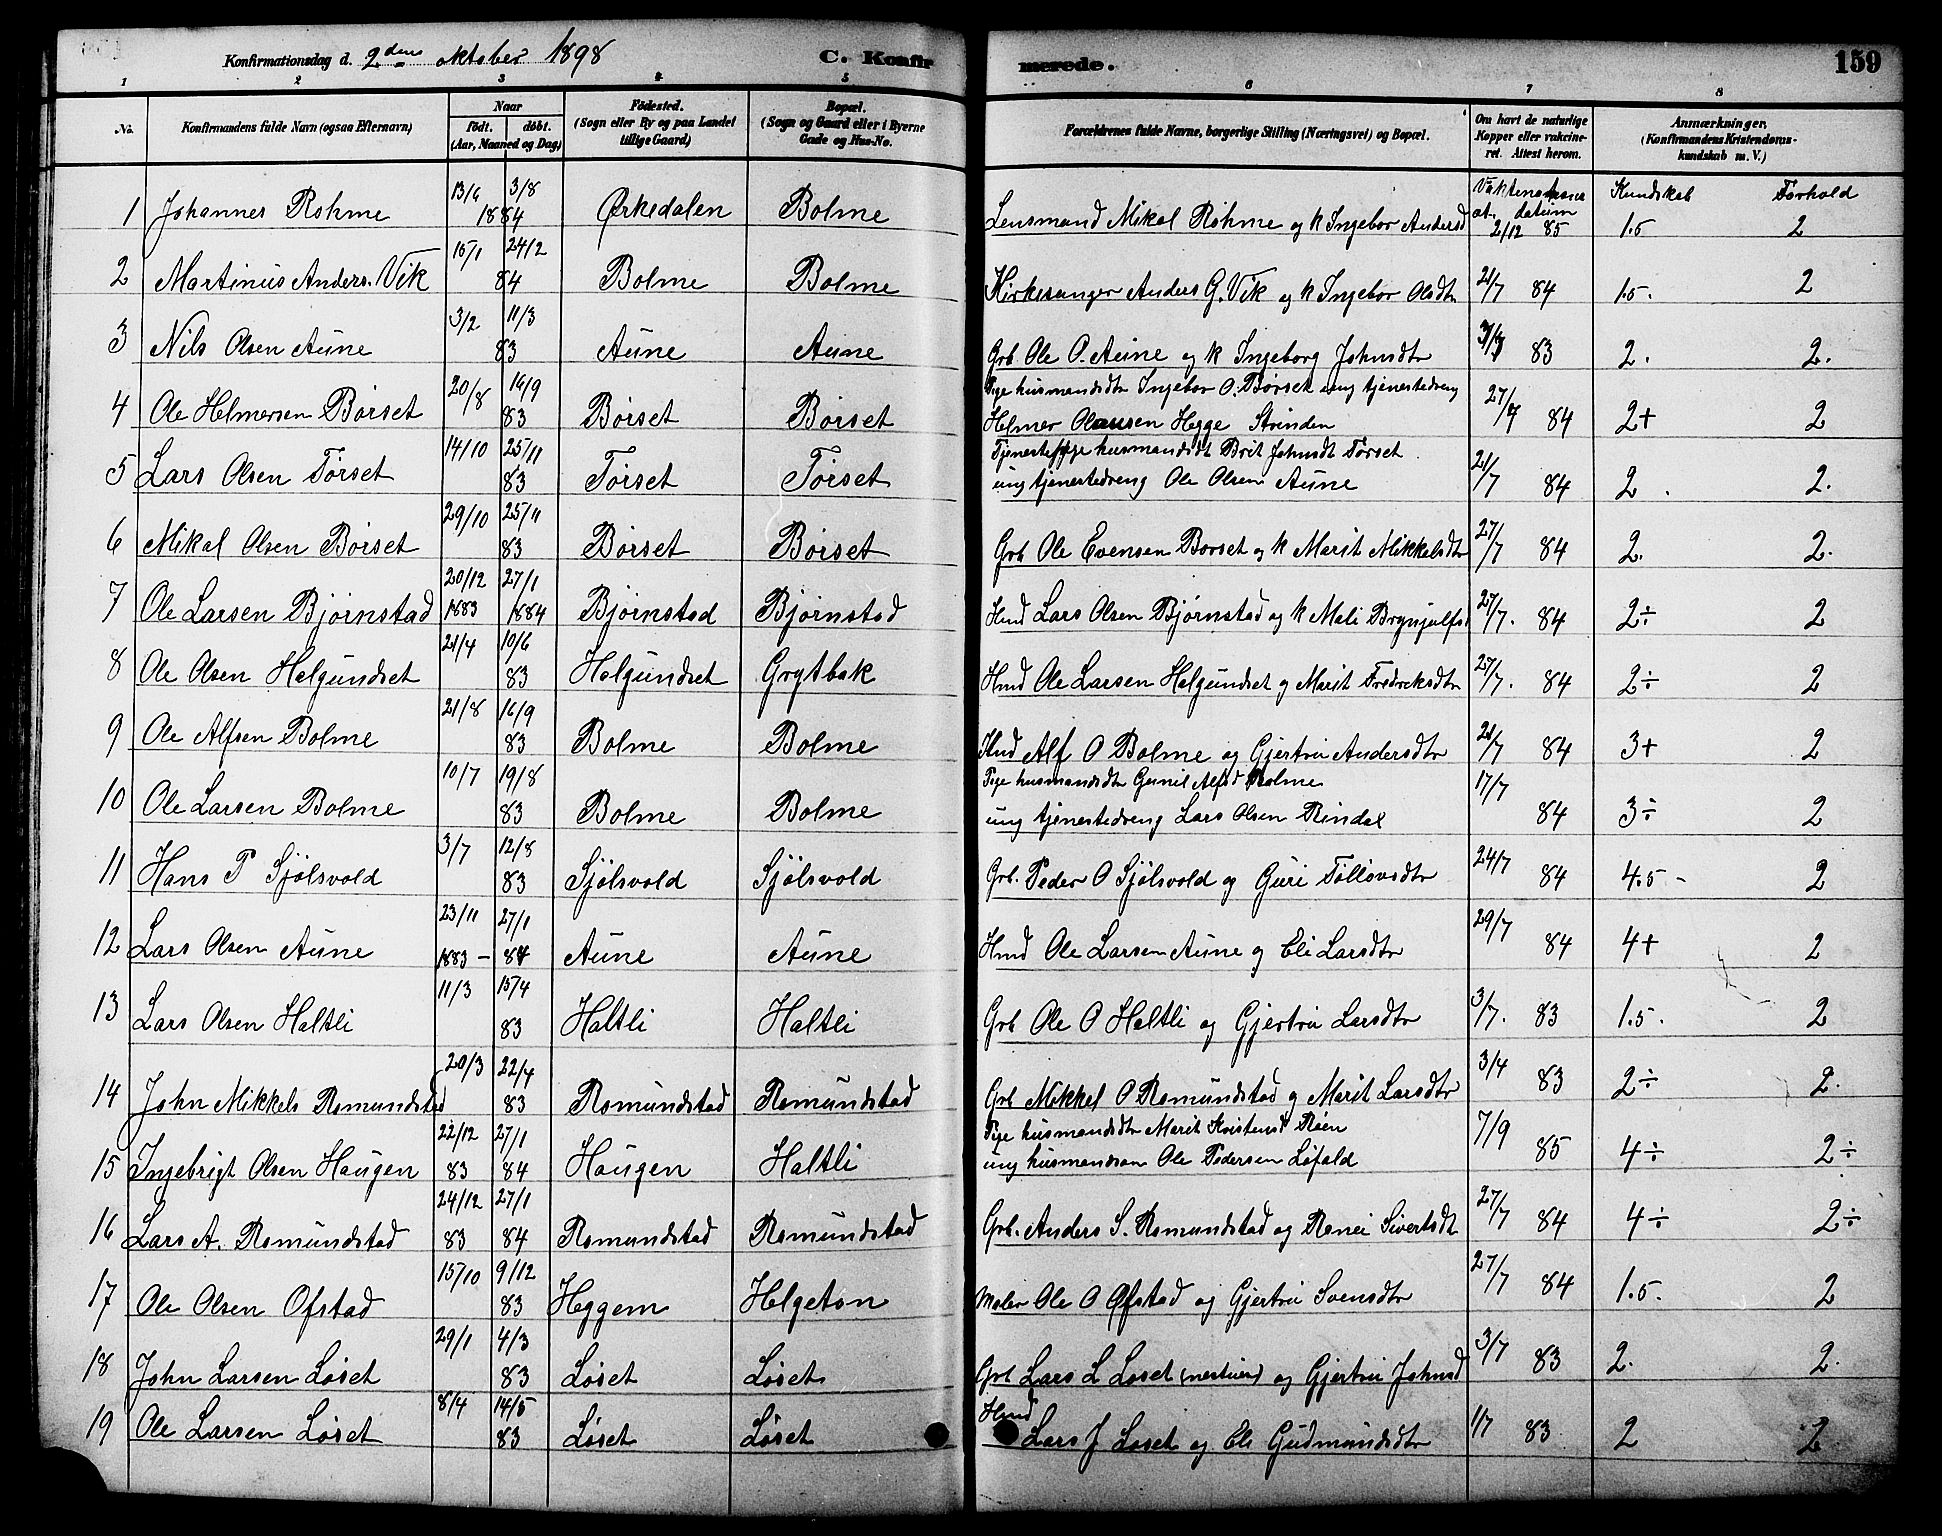 Konfirmationsdag d. 2den oktober 1898 C. Konfirmerede. 159
1 2 3 4 5 6 7 8
No. Konfirmandens fulde Navn (ogsaa Efternavn) Naar født. døbt. (Aar, Maaned og Dag) Fødested. (Sogn eller By og paa Landet tillige Gaard) Bopæl. (Sogn og Gaard eller i Byerne Gade og Hus-No. Forældrenes fulde Navne, borgerlige Stilling (Næringsvei) og Bopæl. Om havt de naturlige Kopper eller vakcineret. Attest herom. Anmærkninger, (Konfirmandens Kristendomskundskab m. V.)
Kundskab Forhold
1 Johannes Rohme 13/6 3/8 1884 Ørkedalen Bolme Lensmand Mikal Røhme og k Ingebor Andersd at. datum 2/12 85 1.5 2
2 Martinus Anders. Vik 15/1 24/2 84 Bolme Bolme Kirkesanger Anders G. Vik og k Ingebor Olsdtr 21/7 84 1.5. 2
3 Nils Olsen Aune 3/2 11/3 83 Aune Aune Grb Ole O. Aune og k Ingeborg Johnsdtr 83 2. 2.
4 Ole Helmersen Børset 20/8 16/9 83 Børset Børset Pige husmandsdtr Ingebor O. Børset ung tjenestedreng
Helmer Olausen Hegge Strinden 27/7 84 2+ 2
5 Lars Olsen Tørset 14/10 25/11 83 Tørset Tørset Tjenestepige husmandsdt Brit Johnsdt Tørset
ung tjenestedreng Ole Olsen Aune 21/7 84 2. 2.
6 Mikal Olsen Børset 29/10 25/11 83 Børset Børset Grb Ole Evensen Borset og k Marit Mikkelsdtr 27/7 84 2. 2.
7 Ole Larsen Bjørnstad 20/12 1883 27/1 1884 Bjørnstad Bjørnstad Hmd Lars Olsen Bjørnstad og k Mali Brynjulfsd 27/7. 84 2÷ 2
8 Ole Olsen Helgundset 21/4 10/6 83 Holgundset Grytbak Hmd Ole Larsen Halgundset og Marit Fredriksdtr 27/7. 84 2÷ 2
9 Ole Alfsen Bolme 21/8 16/9 83 Bolme Bolme Hmd Alf O Bolme og Gjertru Andersdtr 21/7 84 3+ 2
10 Ole Larsen Bolme 10/7 19/8 83 Bolme Bolme Pige husmandsdtr Gunil Alfsd Bolme
ung tjenestedreng Lars Olsen Rindal 17/7 84 3÷ 2
11 Hans P Sjølsvold 3/7 12/8 83 Sjølsvold Sjølsvold Grb. Peder O Sjølsvold og Guri Tølløvsdtr 24/7 84 4.5 - 2
12 Lars Olsen Aune 23/11 27/1 1883 - 84 Aune Aune Hmd Ole Larsen Aune og Eli Larsdtr 29/7 84 4+ 2
13 Lars Olsen Haltli 11/3 15/4 83 Haltli Haltli Grb Ole O Haltli og Gjertru Larsdtr 3/7. 83 1.5. 2
14 John Mikkels Romundstad 20/3 22/4 83 Romundstad Romundstad Grb Mikkel O Romundstad og Marit Larsdtr 3/4 83 2÷ 2.
15 Ingebrigt Olsen Haugen 22/12 27/1 83 84 Haugen Haltli Pige husmandsdtr Marit Kristensd Røen
ung husmandsøn Ole Pedersen Løfald 7/9 85 4÷ 2÷
16 Lars A. Romundstad 24/12 27/1 83 84 Romundstad Romundstad Grb. Anders S. Romundstad og Renei Sivertsdt 27/7 84 4÷ 2÷
17 Ole Olsen Ofstad 15/10 9/12 83 Heggem Helgeton Maler Ole O Øfstad og Gjertru Svensdtr 27/7 84 1.5. 2
18 John Larsen Løset 29/1 4/3 83 Løset Løset Grb Lars L Løset og Gjertru Johnsd 3/7 83 2. 2.
19 Ole Larsen Løset 8/4 14/5 83 Løset Løset Hmd Lars J Løset og Eli Gudmundsdtr 1/7 83 2 2